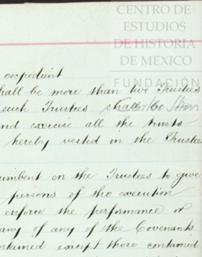 CENTRO DE
ESTUDIOS
DE HISTORIA
DE MEXICO
FUNDACIÓN
expedient
shall be more than two Trustees
such Trustees shall
and exercise all the trusts
hereby vested in the Trustees
incumbent on the Trustees to give
persons of the execution
enforce the performance of
any of any of the Covenants
contained except those contained